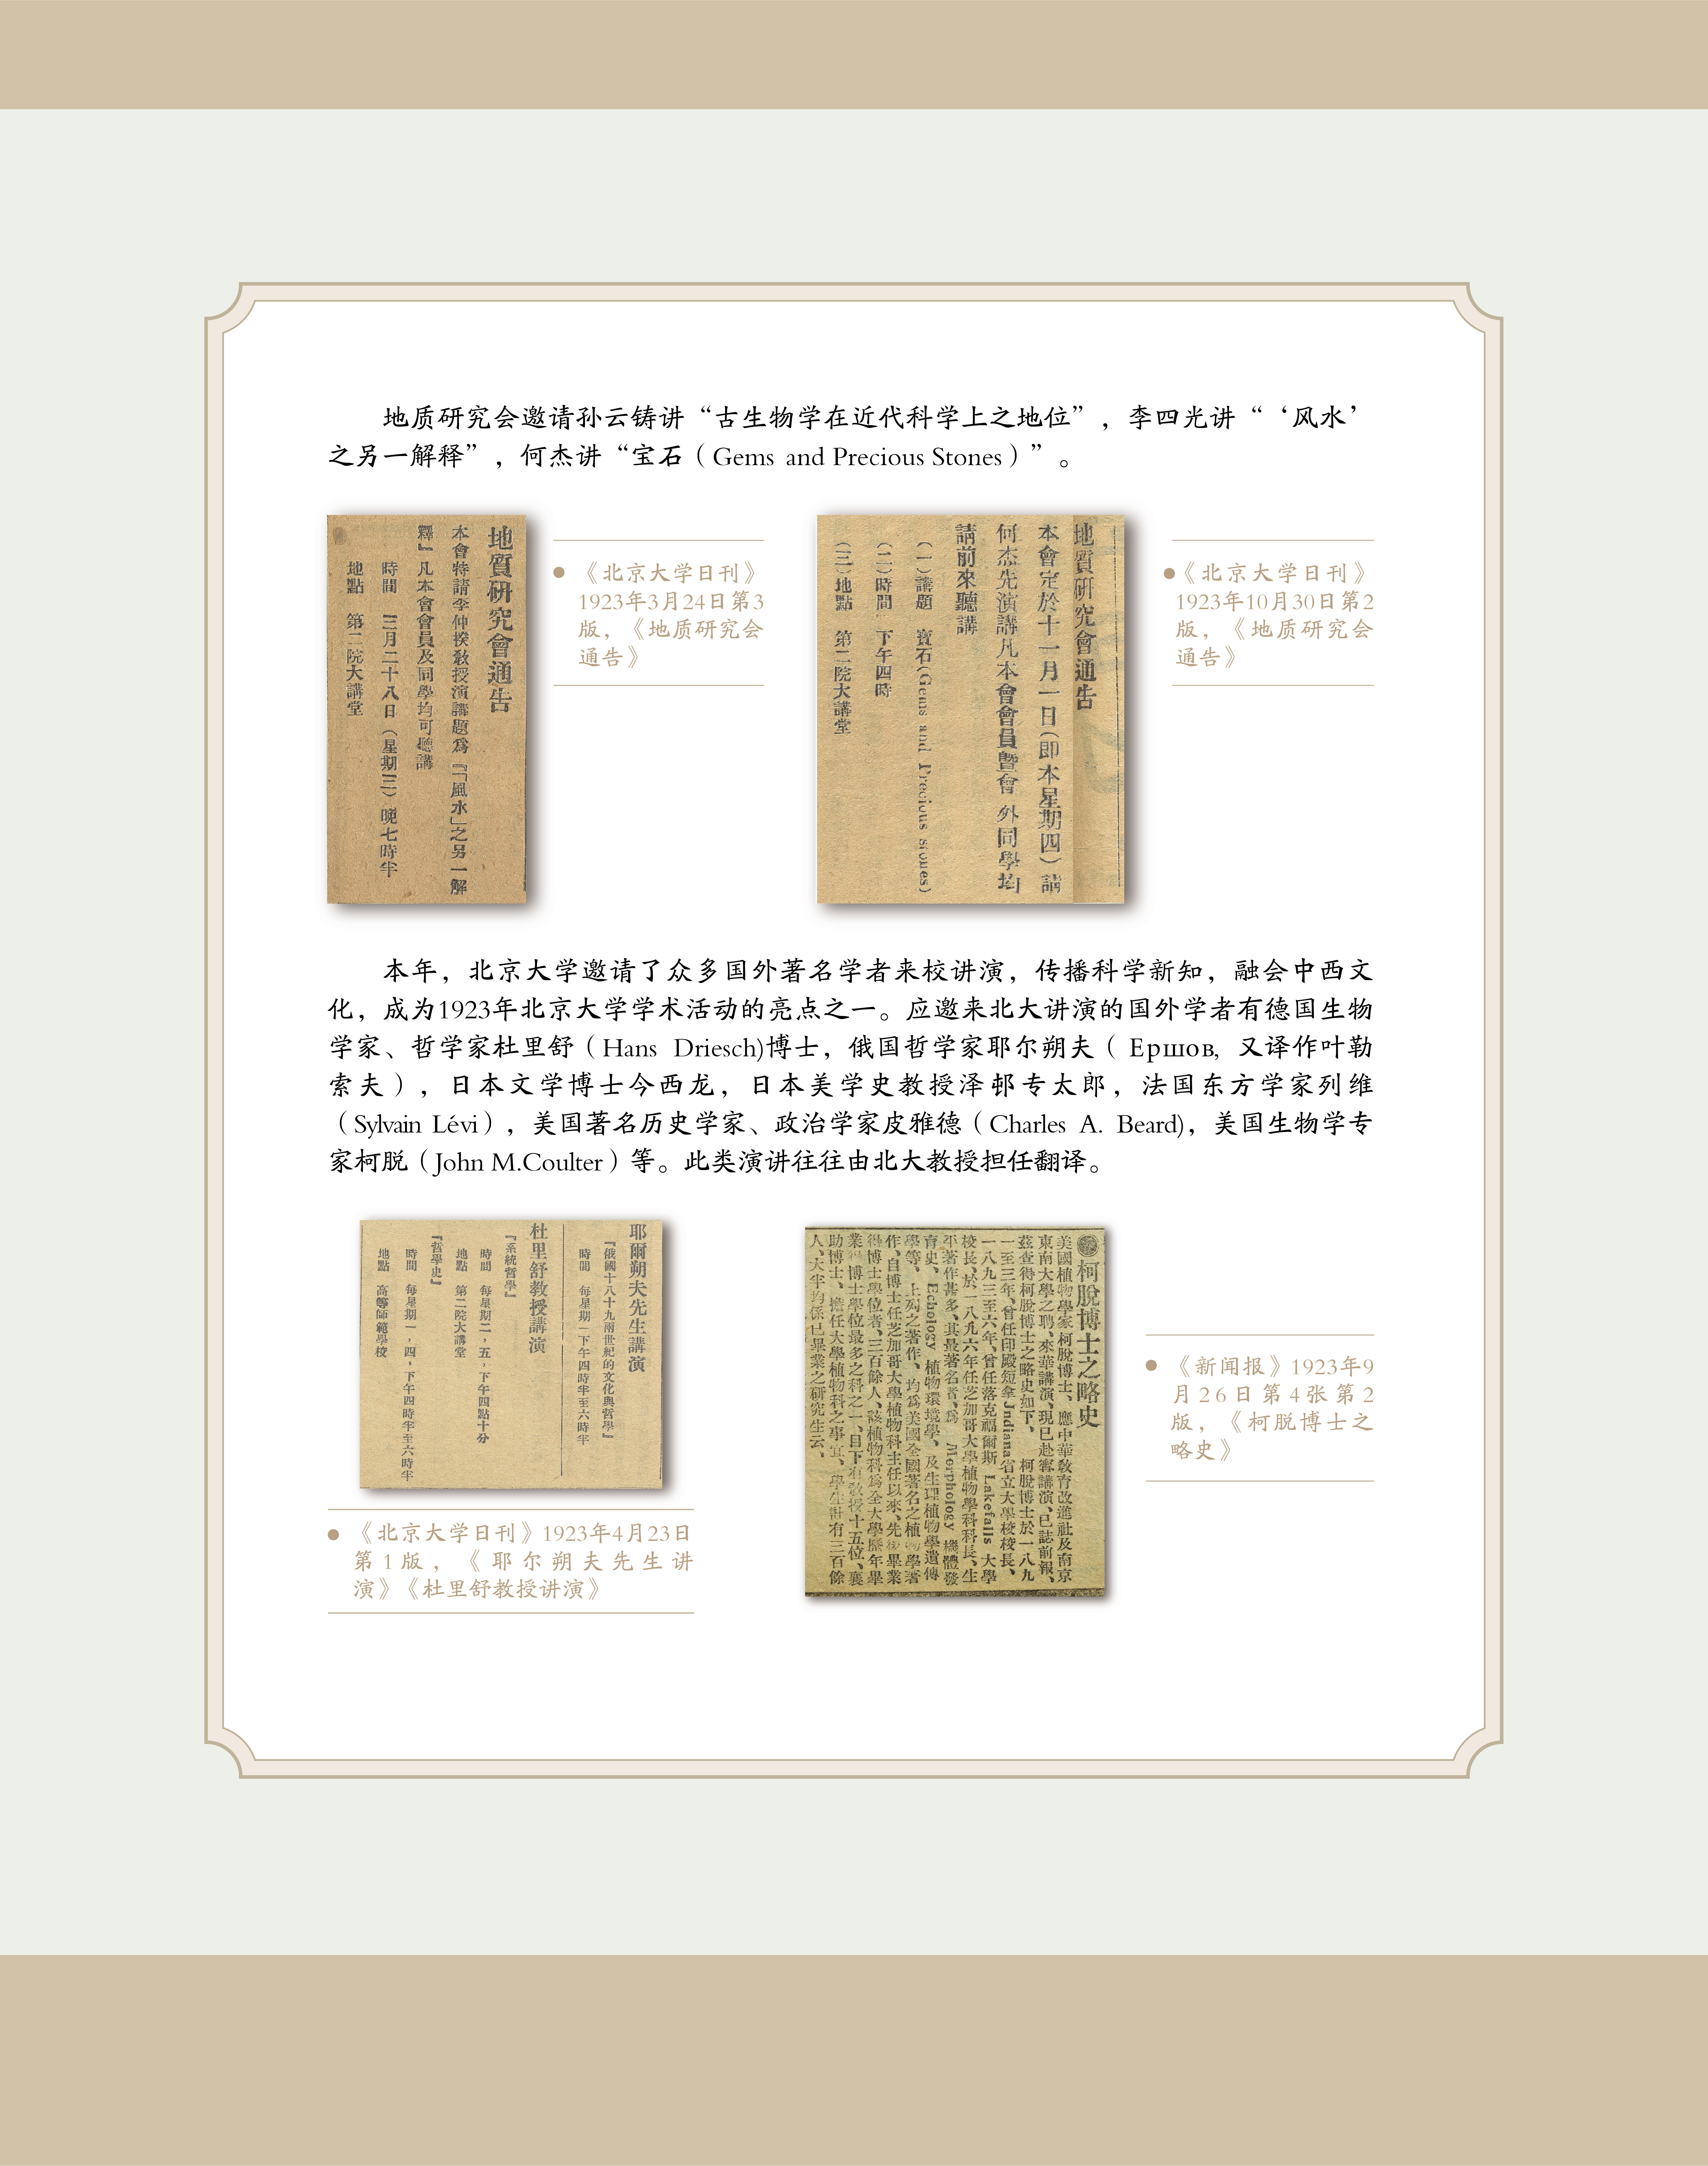 地质研究会邀请孙云铸讲“古生物学在近代科学上之地位”，李四光讲“‘风水’
之另一解释”，何杰讲“宝石（Gems and Precious Stones）”。
地質研究會通告
本會特請李仲揆敎授演講題爲『「風水」之另一解
釋』凡本會會員及同學均可聽講
時間　三月二十八日（星期三）晚七時半
地點　第二院大講堂
《北京大学日刊》
1923年3月24日第3
版，《地质研究会
通告》
地質研究會通告
本會定於十一月一日（即本星期四）請
何杰先演講凡本會會員暨會外同學均
請前來聽講
（一）講題　寶石(Gems and Precious stones)
（二）時間　下午四時
（三）地點　第二院大講堂
《北京大学日刊》
1923年10月30日第2
版，《地质研究会
通告》
本年，北京大学邀请了众多国外著名学者来校讲演，传播科学新知，融会中西文
化，成为1923年北京大学学术活动的亮点之一。应邀来北大讲演的国外学者有德国生物
学家、哲学家杜里舒（Hans Driesch)博士，俄国哲学家耶尔朔夫（Ершов, 又译作叶勒
索夫），日本文学博士今西龙，日本美学史教授泽邨专太郎，法国东方学家列维
（Sylvain Lévi），美国著名历史学家、政治学家皮雅德（Charles A. Beard)，美国生物学专
家柯脱（John M.Coulter）等。此类演讲往往由北大教授担任翻译。
耶爾朔夫先生講演
『俄國十八十九兩世紀的文化與哲學』
時間　每星期一下午四時半至六時半
杜里舒教授講演
『系統哲學』
時間　每星期二，五，下午四點十分
地點　第二院大講堂
『哲學史』
時間　每星期一，四，下午四時半至六時半
地點　高等師範學校
《北京大学日刊》1923年4月23日
第1版，《耶尔朔夫先生讲
演》《杜里舒教授讲演》
柯脫博士之略史
美國植物學家柯脫博士、應中華敎育改進社及南京
東南大學之聘、來華講演、現已赴寧講演、已誌前報、
茲查得柯脫博士之略史如下、　柯脫博士於一八九
一至三年、曾任印殿短拿Jndiana省立大學校校長、
一八九三至六年、曾任落克福爾斯 Lakefalls 大學
校長、於一八九六年任芝加哥大學植物學科科長、生
平著作甚多、其最著名者、爲 Morphology 機體發
育史、Echology 植物環境學、及生理植物學遺傳
學等、上列之著作、均爲美國全國著名之植物學著
作、自博士任芝加哥大學植物科主任以來、先後畢業
得博士學位者、三百餘人、該植物科爲全大學歷年畢
業得博士學位最多之科之一、目下有敎授十五位、襄
助博士、擔任大學植物科之事宜、學生計有三百餘
人、大半均係已畢業之研究生云、
《新闻报》1923年9
月26日第4张第2
版，《柯脱博士之
略史》